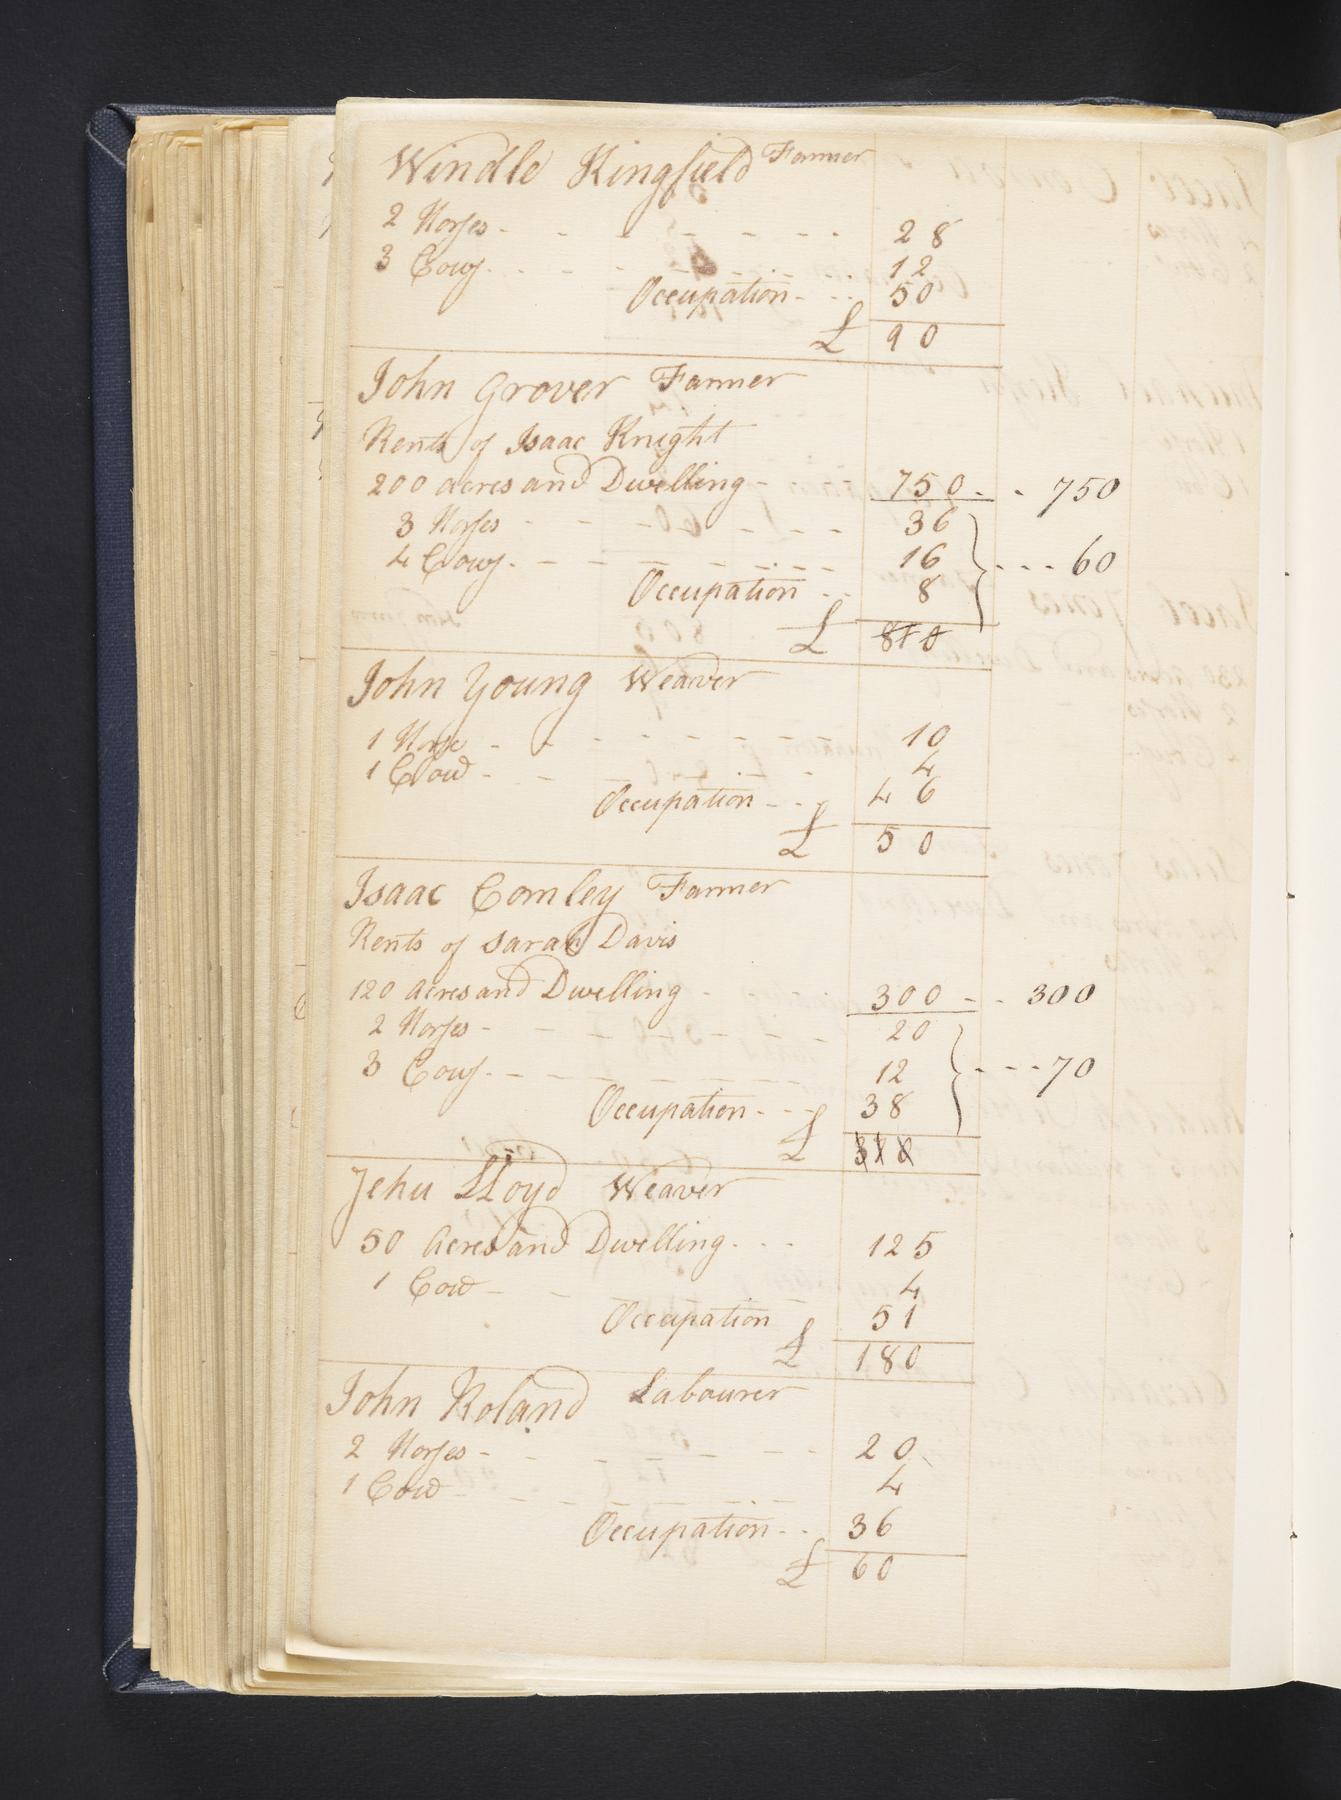 Windle Kingfield Farmer
2 Horses - - - - - - - 28
3 Cows - - - - - - - 12
Occupation - - - 50
£ 90
John Grover Farmer
Rents of Isaac Knight
200 acres and Dwelling - 750 - - 750
3 Horses - - - - - - - 36
4 Cows - - - - - - - 16 - - - 60
Occupation - - 8
£ 810
John Young Weaver
1 Horse - - - - - - - 10
1 Cow - - - - - 4
Occupation - - - 46
£ 50
Isaac Comley Farmer
Rents of Sarah Davis
120 Acres and Dwelling - - - 300 - - 300
2 Horses - - - - - - - 20
3 Cows - - - - - - - 12 - - - 70
Occupation - - - 38
£
Jehu LLoyd Weaver
50 Acres and Dwelling - - - 125
1 Cow - - - - - 4
Occupation 51
£ 180
John Roland Labourer
2 Horses - - - - - - 20
1 Cow - - - - - 4
Occupation - - 36
£ 60